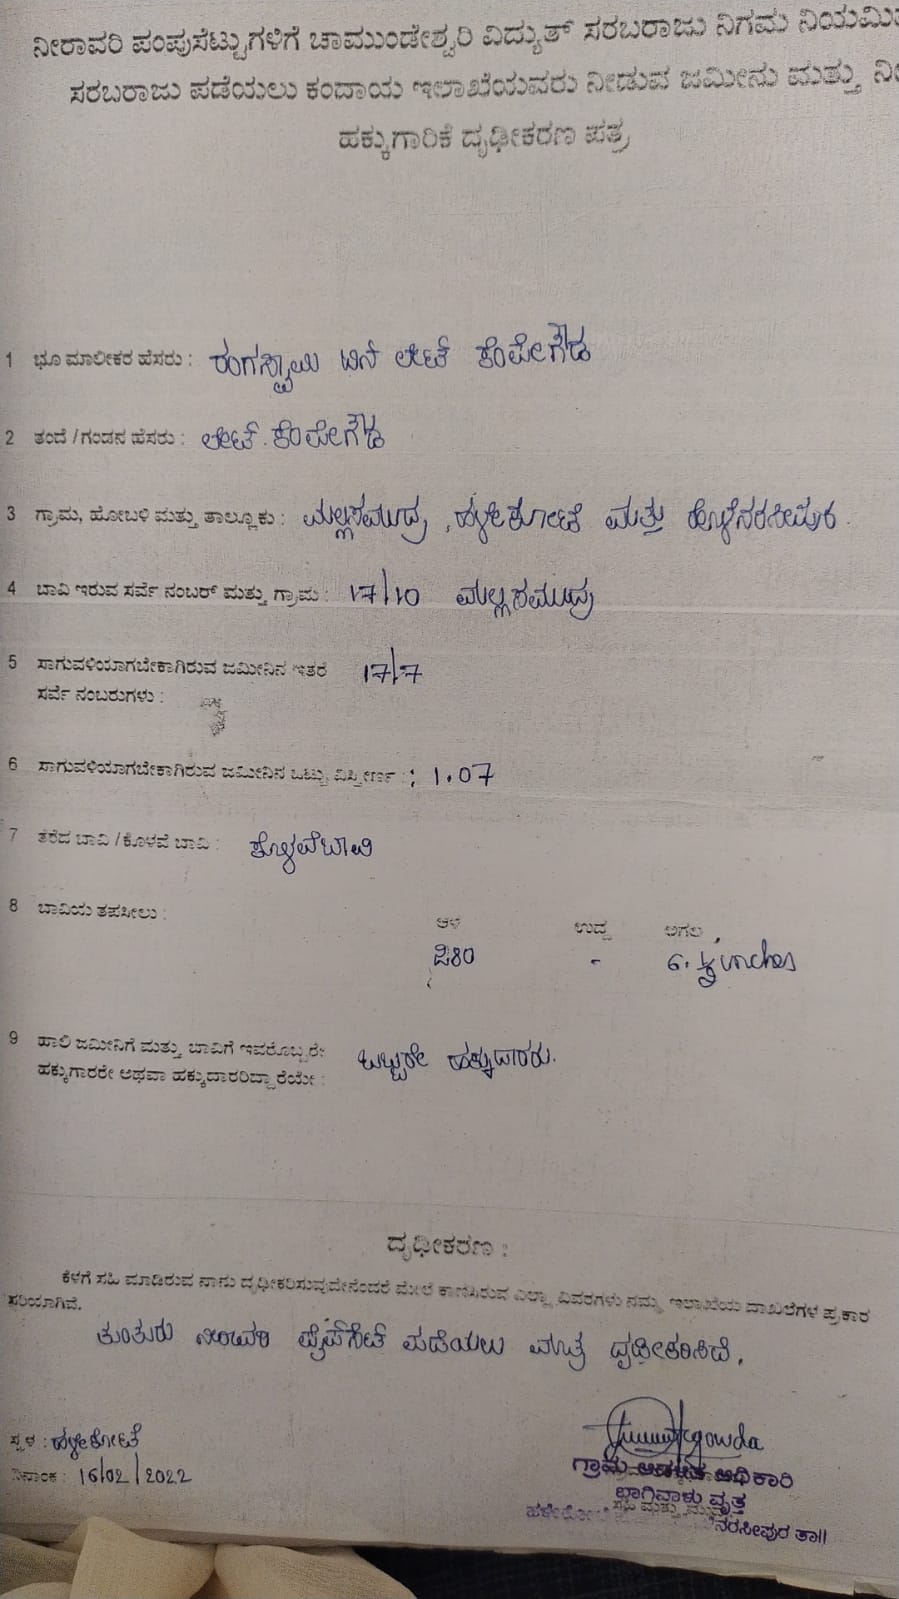 ನೀರಾವರಿ ಪಂಪುಸೆಟ್ಟುಗಳಿಗೆ ಚಾಮುಂಡೇಶ್ವರಿ ವಿದ್ಯುತ್ ಸರಬರಾಜು ನಿಗಮ
ಸರಬರಾಜು ಪಡೆಯಲು ಕಂದಾಯ ಇಲಾಖೆಯವರು ನೀಡುವ ಜಮೀನು ಮತ್ತು
ಹಕ್ಕುಗಾರಿಕೆ ದೃಢೀಕರಣ ಪತ್ರ
1 ಭೂ ಮಾಲೀಕರ ಹೆಸರು : ರಂಗಸ್ವಾಮಿ ಬಿನ್ ಲೇಟ್ ಕೆಂಪೇಗೌಡ
2 ತಂದೆ / ಗಂಡನ ಹೆಸರು : ಲೇಟ್. ಕೆಂಪೇಗೌಡ
3 ಗ್ರಾಮ, ಹೋಬಳಿ ಮತ್ತು ತಾಲ್ಲೂಕು : ಮಲ್ಲಸಮುದ್ರ , ಹಳೇಕೋಟೆ ಮತ್ತು ಹೊಳೆನರಸೀಪುರ.
4 ಬಾವಿ ಇರುವ ಸರ್ವೆ ನಂಬರ್ ಮತ್ತು ಗ್ರಾಮ : 17/10 ಮಲ್ಲಸಮುದ್ರ
5 ಸಾಗುವಳಿಯಾಗಬೇಕಾಗಿರುವ ಜಮೀನಿನ ಇತರೆ 17/7
ಸರ್ವೆ ನಂಬರುಗಳು :
6 ಸಾಗುವಳಿಯಾಗಬೇಕಾಗಿರುವ ಜಮೀನಿನ ಒಟ್ಟು ವಿಸ್ತೀರ್ಣ : 1.07
7 ತೆರೆದ ಬಾವಿ / ಕೊಳವೆ ಬಾವಿ : ಕೊಳವೆಬಾವಿ
8 ಬಾವಿಯ ತಪಸೀಲು :
ಆಳ ಉದ್ದ ಅಗಲ
- 6.½ inches
9 ಹಾಲಿ ಜಮೀನಿಗೆ ಮತ್ತು ಬಾವಿಗೆ ಇವರೊಬ್ಬರೇ ಒಬ್ಬರೇ ಹಕ್ಕುದಾರರು.
ಹಕ್ಕುಗಾರರೇ ಅಥವಾ ಹಕ್ಕುದಾರರಿದ್ದಾರೆಯೇ :
ದೃಢೀಕರಣ :
ಕೆಳಗೆ ಸಹಿ ಮಾಡಿರುವ ನಾನು ದೃಢೀಕರಿಸುವುದೇನೆಂದರೆ ಮೇಲೆ ಕಾಣಿಸಿರುವ ಎಲ್ಲಾ ವಿವರಗಳು ನಮ್ಮ ಇಲಾಖೆಯ ದಾಖಲೆಗಳ ಪ್ರಕಾರ
ಸರಿಯಾಗಿವೆ.
ತುಂತುರು ನೀರಾವರಿ ಪೈಪ್‌ಸೆಟ್ ಪಡೆಯಲು ಮಾತ್ರ ದೃಢೀಕರಿಸಿದೆ.
ಸ್ಥಳ : ಹಳೇಕೋಟೆ
ದಿನಾಂಕ : 16/02/2022
ಗ್ರಾಮ ಆಡಳಿತ ಅಧಿಕಾರಿ
ಬಾಗಿವಾಳು ವೃತ್ತ
ನರಸೀಪುರ ತಾ||